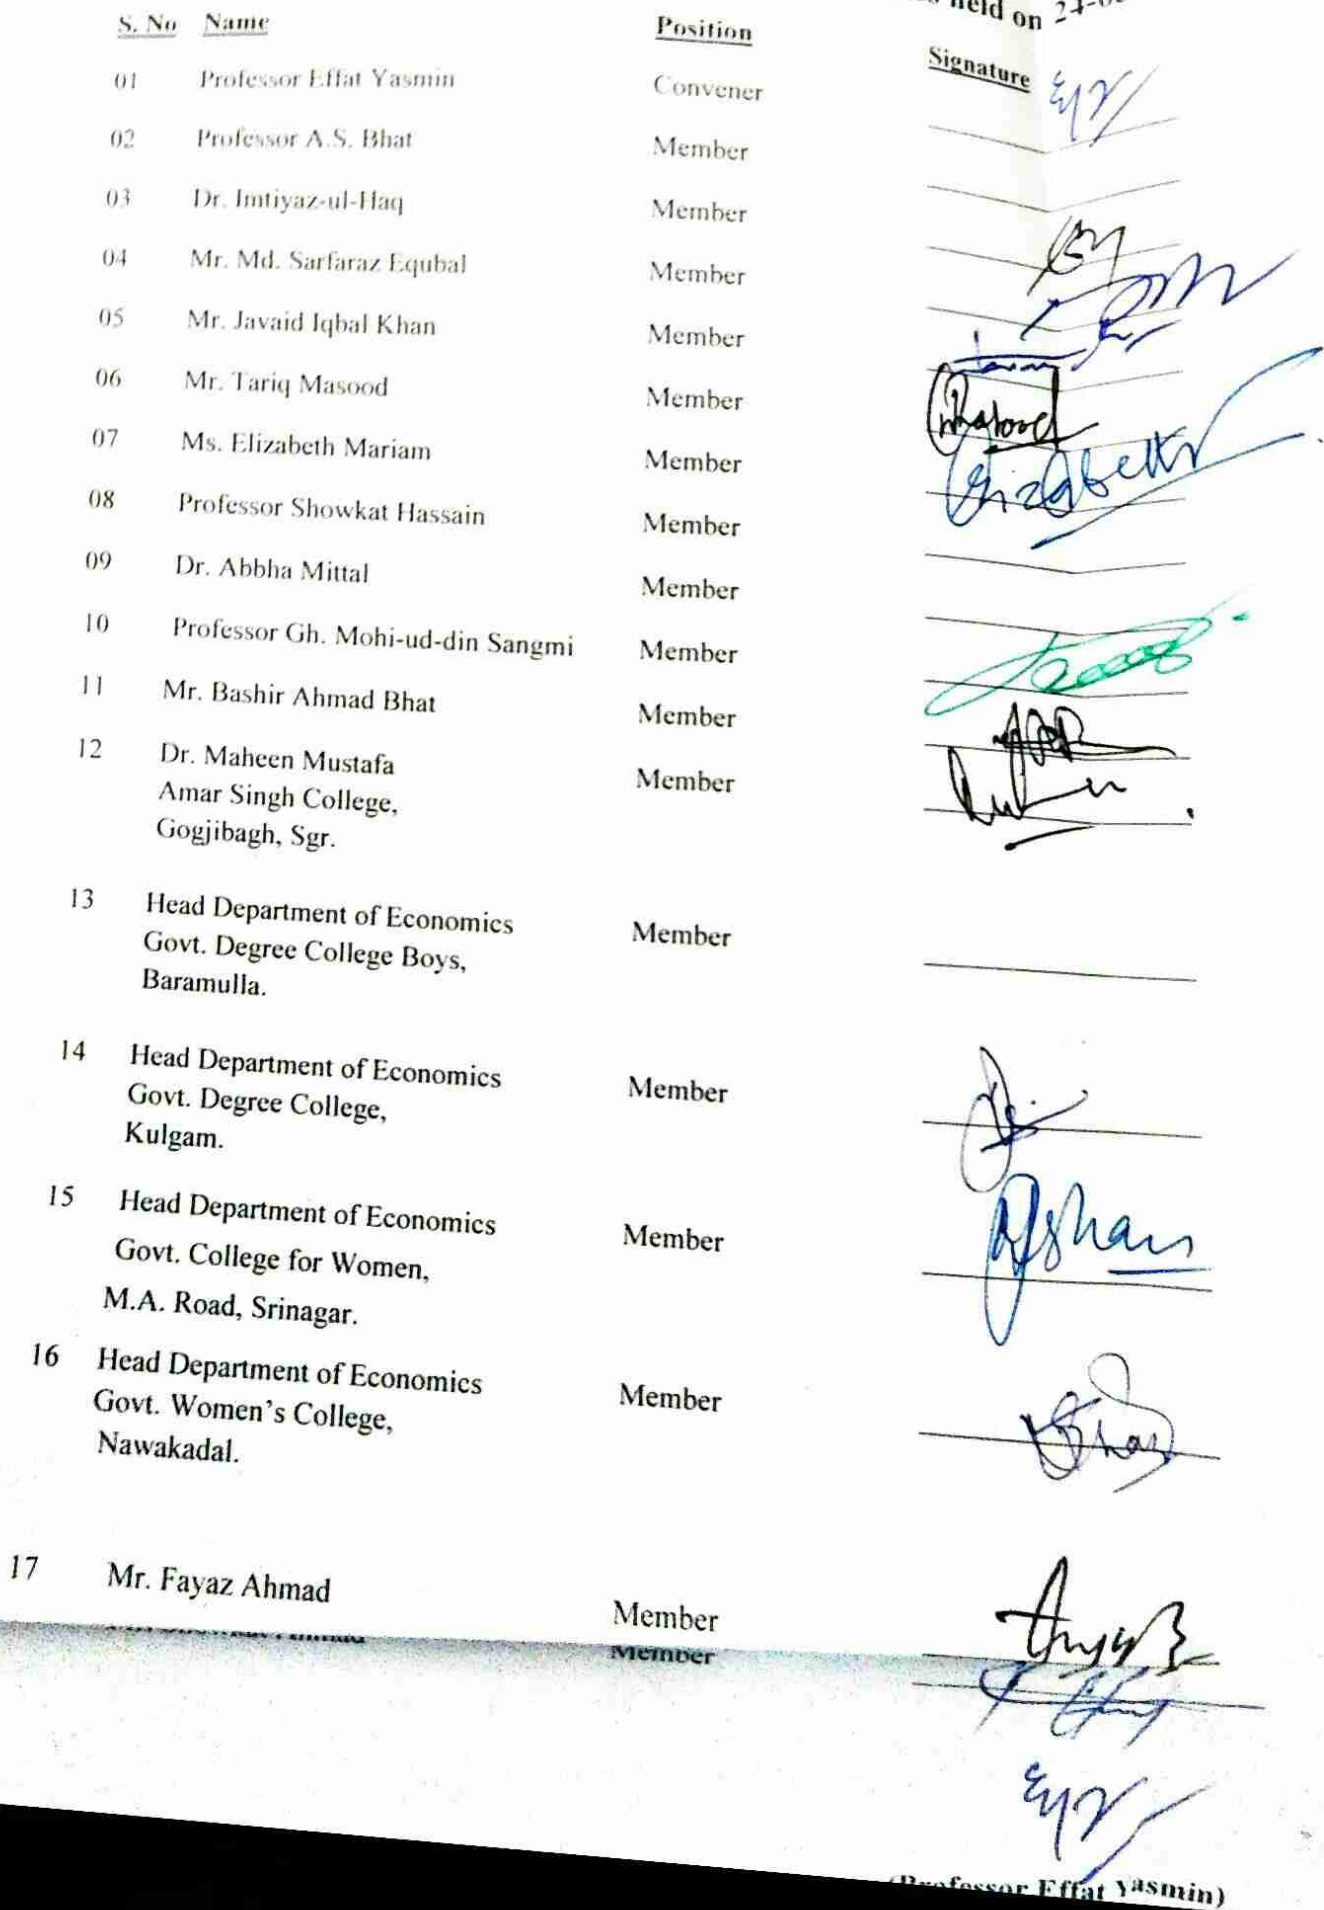 held on 24-0
S. No Name Position Signature
01 Professor Effat Yasmin Convener
02 Professor A.S. Bhat Member
03 Dr. Imtiyaz-ul-Haq Member
04 Mr. Md. Sarfaraz Equbal Member
05 Mr. Javaid Iqbal Khan Member
06 Mr. Tariq Masood Member Masood
07 Ms. Elizabeth Mariam Member Elizabeth
08 Professor Showkat Hassain Member
09 Dr. Abbha Mittal Member
10 Professor Gh. Mohi-ud-din Sangmi Member
11 Mr. Bashir Ahmad Bhat Member
12 Dr. Maheen Mustafa Member
Amar Singh College,
Gogjibagh, Sgr.
13 Head Department of Economics Member
Govt. Degree College Boys,
Baramulla.
14 Head Department of Economics Member
Govt. Degree College,
Kulgam.
15 Head Department of Economics Member Afshan
Govt. College for Women,
M.A. Road, Srinagar.
16 Head Department of Economics Member
Govt. Women's College,
Nawakadal.
17 Mr. Fayaz Ahmad Member
Member
(Professor Effat Yasmin)